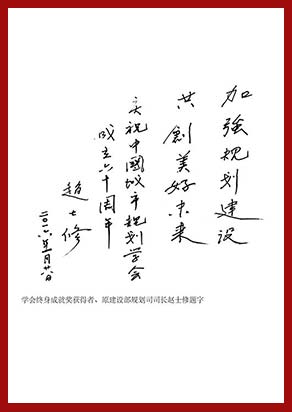 加强规划建设
共創美好未来
庆祝中國城市規划学会
成立六十周年
趙士修
二〇一六年五月廿八日
学会终身成就奖获得者、原建设部规划司司长赵士修题字